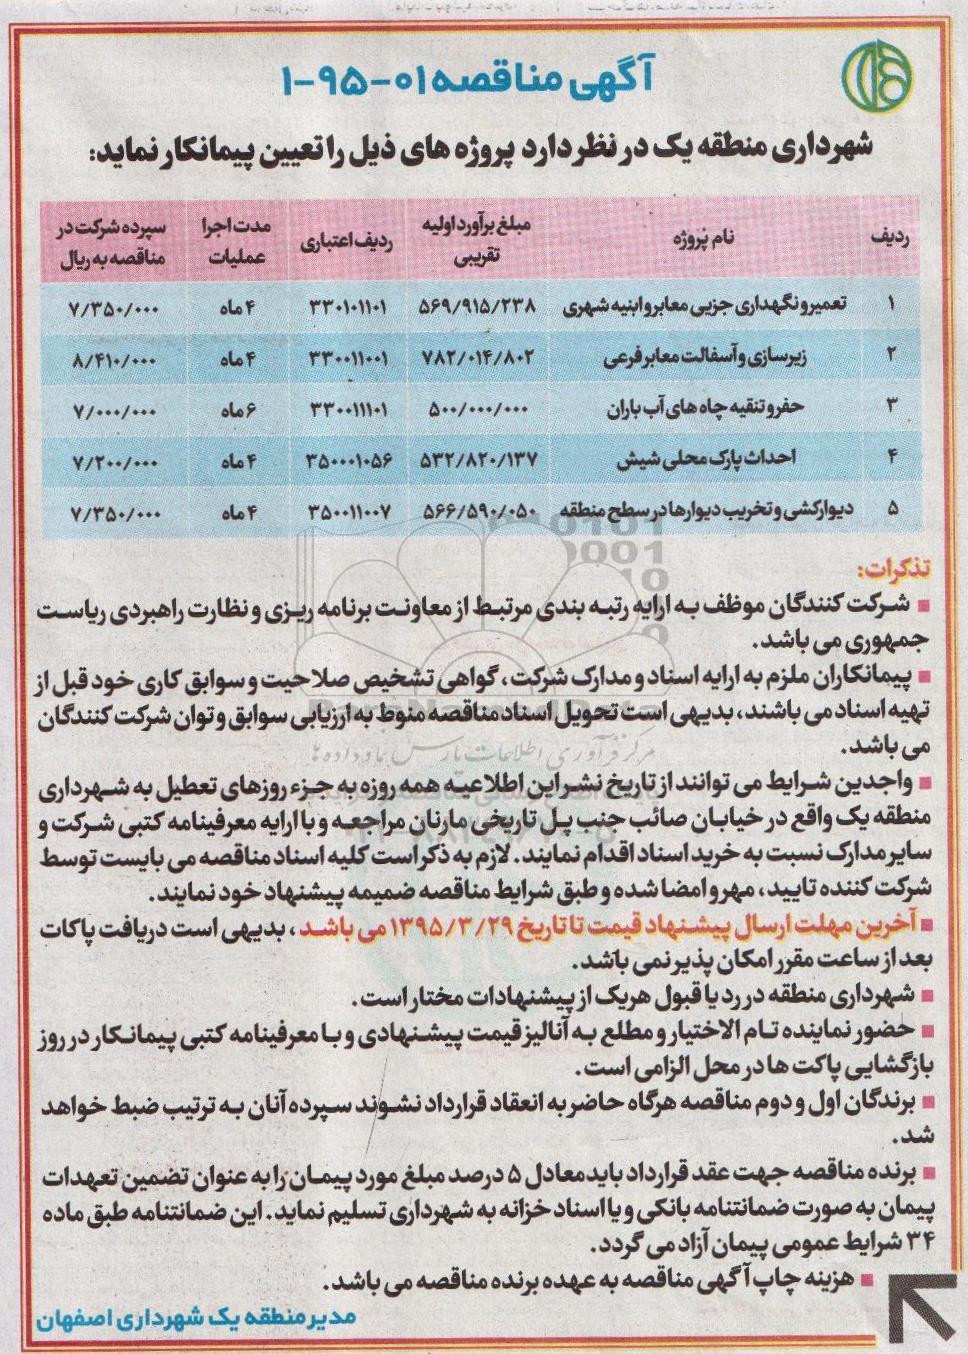 آگهی مناقصه ۰۱-۹۵-۱
شهرداری منطقه یک در نظر دارد پروژه های ذیل را تعیین پیمانکار نماید:
ردیف | نام پُروژه | مبلغ برآورد اولیه تقریبی | ردیف اعتباری | مدت اجرا عملیات | سپرده شرکت در مناقصه به ریال
۱ | تعمیر و نگهداری جزیی معابر و ابنیه شهری | ۵۶۹/۹۱۵/۲۳۸ | ۳۳۰۱۰۱۱۰۱ | ۴ ماه | ۷/۳۵۰/۰۰۰
۲ | زیرسازی و آسفالت معابر فرعی | ۷۸۲/۰۱۴/۸۰۲ | ۳۳۰۰۱۱۰۰۱ | ۴ ماه | ۸/۴۱۰/۰۰۰
۳ | حفر و تنقیه چاه های آب باران | ۵۰۰/۰۰۰/۰۰۰ | ۳۳۰۰۱۱۱۰۱ | ۶ ماه | ۷/۰۰۰/۰۰۰
۴ | احداث پارک محلی شیش | ۵۳۲/۸۲۰/۱۳۷ | ۳۵۰۰۰۱۰۵۶ | ۴ ماه | ۷/۲۰۰/۰۰۰
۵ | دیوارکشی و تخریب دیوارها در سطح منطقه | ۵۶۶/۵۹۰/۰۵۰ | ۳۵۰۰۱۱۰۰۷ | ۴ ماه | ۷/۳۵۰/۰۰۰
تذکرات:
■ شرکت کنندگان موظف به ارایه رتبه بندی مرتبط از معاونت برنامه ریزی و نظارت راهبردی ریاست
جمهوری می باشد.
■ پیمانکاران ملزم به ارایه اسناد و مدارک شرکت، گواهی تشخیص صلاحیت و سوابق کاری خود قبل از
تهیه اسناد می باشند، بدیهی است تحویل اسناد مناقصه منوط به ارزیابی سوابق و توان شرکت کنندگان
می باشد.
مرکز فرآوری اطلاعات پارس نماد داده ها
■ واجدین شرایط می توانند از تاریخ نشر این اطلاعیه همه روزه به جزء روزهای تعطیل به شهرداری
منطقه یک واقع در خیابان صائب جنب پل تاریخی مارنان مراجعه و با ارایه معرفینامه کتبی شرکت و
سایر مدارک نسبت به خرید اسناد اقدام نمایند. لازم به ذکر است کلیه اسناد مناقصه می بایست توسط
شرکت کننده تایید، مهر و امضا شده و طبق شرایط مناقصه ضمیمه پیشنهاد خود نمایند.
■ آخرین مهلت ارسال پیشنهاد قیمت تا تاریخ ۱۳۹۵/۳/۲۹ می باشد، بدیهی است دریافت پاکات
بعد از ساعت مقرر امکان پذیر نمی باشد.
■ شهرداری منطقه در رد یا قبول هریک از پیشنهادات مختار است.
■ حضور نماینده تام الاختیار و مطلع به آنالیز قیمت پیشنهادی و با معرفینامه کتبی پیمانکار در روز
بازگشایی پاکت ها در محل الزامی است.
■ برندگان اول و دوم مناقصه هرگاه حاضر به انعقاد قرارداد نشوند سپرده آنان به ترتیب ضبط خواهد
شد.
■ برنده مناقصه جهت عقد قرارداد باید معادل ۵ درصد مبلغ مورد پیمان را به عنوان تضمین تعهدات
پیمان به صورت ضمانتنامه بانکی و یا اسناد خزانه به شهرداری تسلیم نماید. این ضمانتنامه طبق ماده
۳۴ شرایط عمومی پیمان آزاد می گردد.
■ هزینه چاپ آگهی مناقصه به عهده برنده مناقصه می باشد.
مدیر منطقه یک شهرداری اصفهان